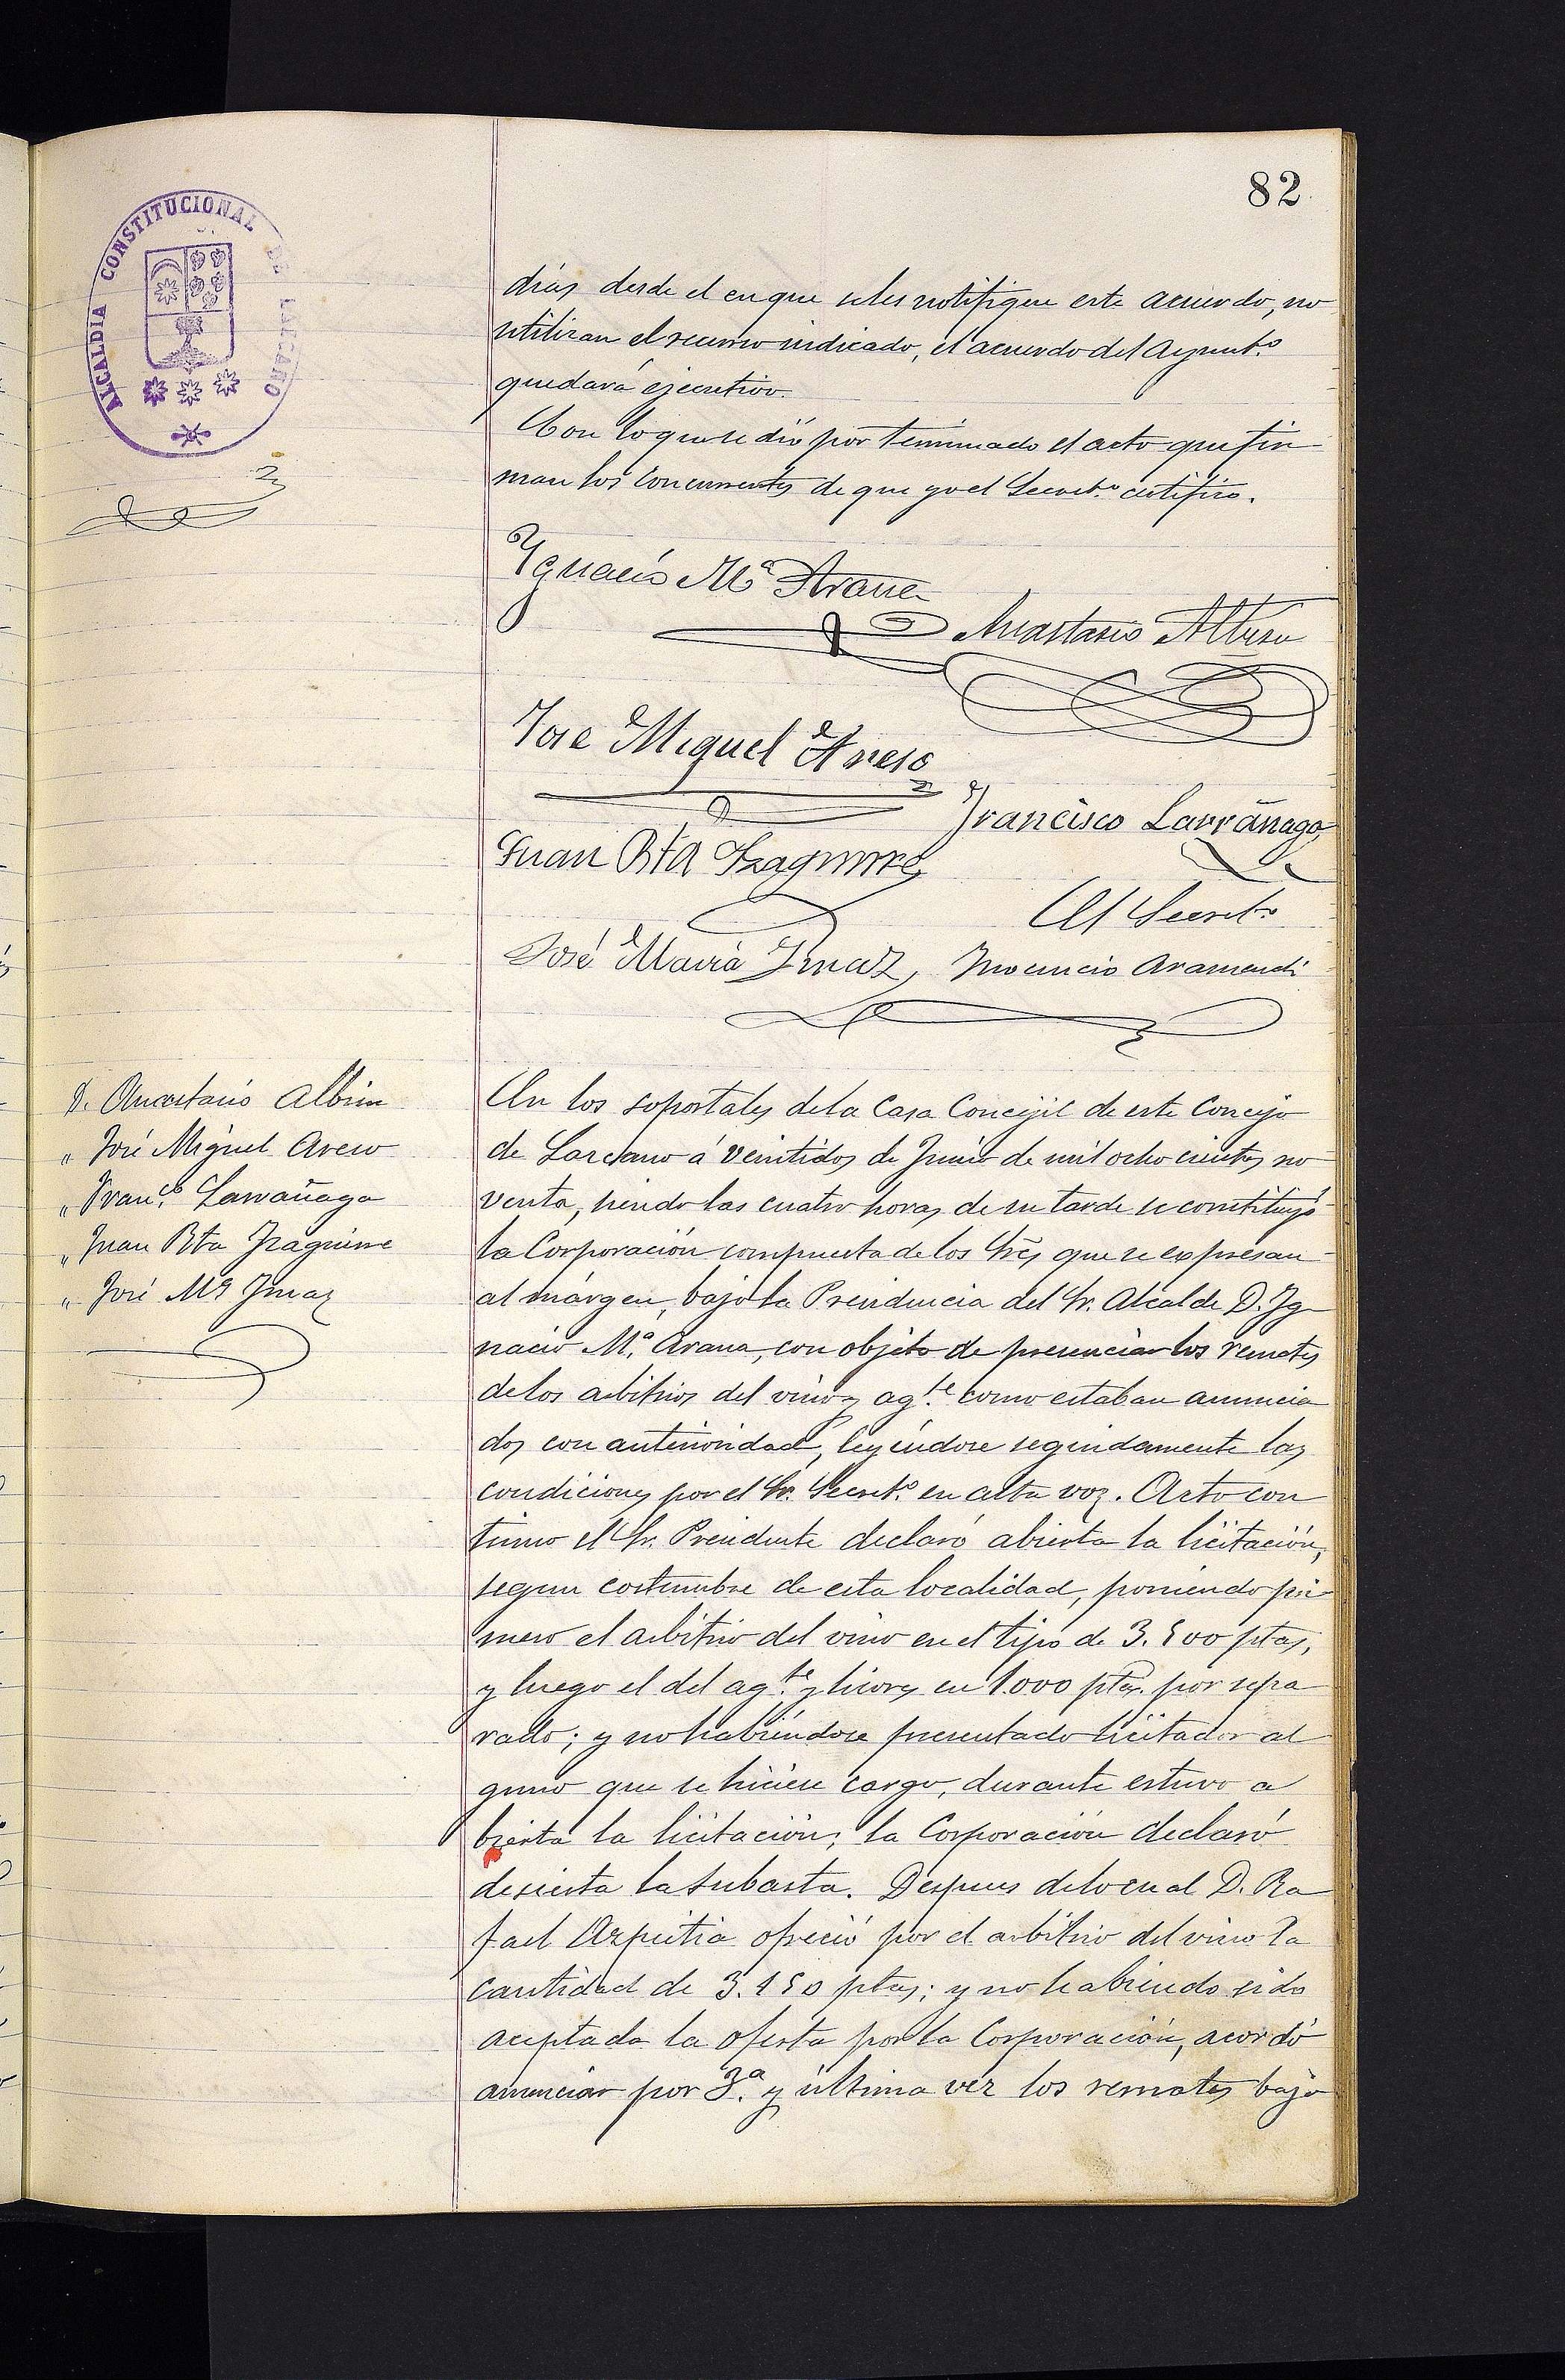 82
ALCALDIA CONSTITUCIONAL DE LAZCANO
dias desde el en que se les notifique este acuerdo, no
utilizan el recurso indicado, el acuerdo del Ayunt.º
quedará ejecutivo.
Con lo que se dió por terminado el acto que fir
man los concurrentes de que yo el Secret.º certifico.
Ygnacio Mª Arana
Anastasio Albisu
Jose Miguel Areso
Francisco Larrãnaga
Juan Bta Izaguirre
El Secret.º
José Maria Imaz
Inocencio Aramendi
D. Anastasio Albisu
„ José Miguel Areso
„ Fran.co Larrañaga
„ Juan Bta Izaguirre
„ José Mª Imaz
En los soportales de la Casa Concejil de este Concejo
de Lazcano á veintidos de Junio de mil ocho cientos no
venta, siendo las cuatro horas de su tarde se constituyó
la Corporación compuesta de los Sres que se expresan
al márgen, bajo la Presidencia del Sr. Alcalde D. Ig
nacio M.ª Arana, con objeto de presenciar los remates
de los arbitrios del vino y ag.te como estaban anuncia
dos con anterioridad, leyéndose seguidamente las
condiciones por el Sr. Secret.º en alta voz. Acto con
tinuo el Sr. Presidente declaró abierta la licitación,
segun costumbre de esta localidad, poniendo pri
mero el arbitrio del vino en el tipo de 3.500 ptas,
y luego el del ag.te y licores en 1.000 ptas. por sepa
rado; y no habiéndose presentado licitador al
guno que se hiciese cargo, durante estuvo a
bierta la licitación; la Corporación declaró
desierta la subasta. Despues de lo cual D. Ra
fael Azpeitia ofreció por el arbitrio del vino la
cantidad de 3.150 ptas; y no habiendo sido
aceptada la oferta por la Corporación, acordó
anunciar por 3.ª y última vez los remates bajo